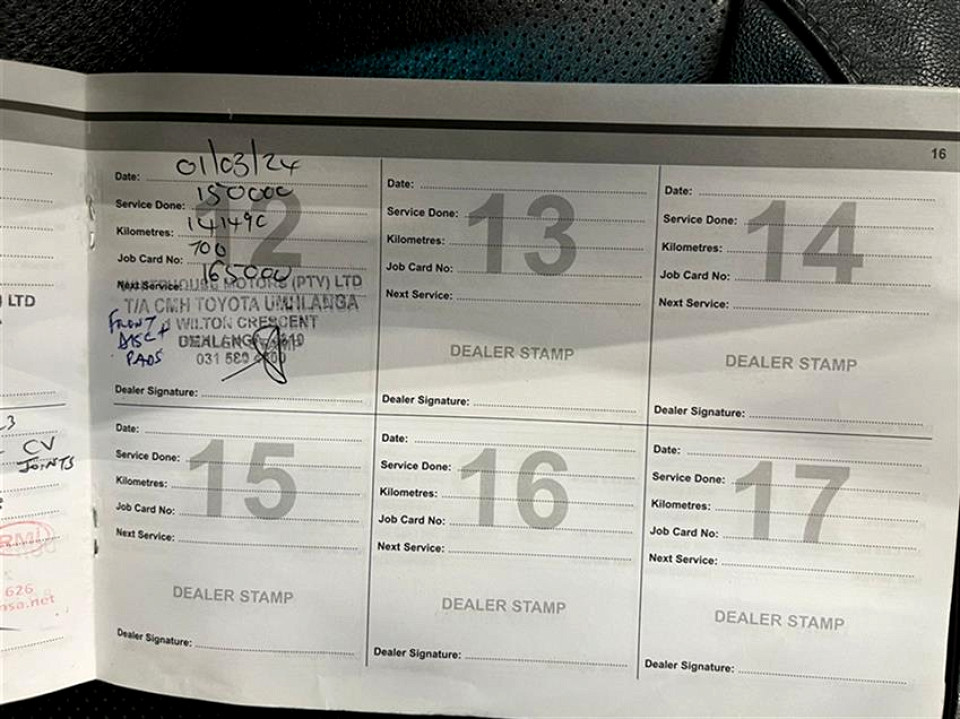 LTD
3
CV
JOINTS
RM
626
nsa.net
16
12
Date: 01/03/24
Service Done: 150000
Kilometres: 141490
Job Card No: 700
Next Service: 165000
MOTORS (PTY) LTD
T/A CMH TOYOTA UMHLANGA
WILTON CRESCENT
031 580
FRONT
DISC +
PADS
Dealer Signature:
13
Date:
Service Done:
Kilometres:
Job Card No:
Next Service:
DEALER STAMP
Dealer Signature:
14
Date:
Service Done:
Kilometres:
Job Card No:
Next Service:
DEALER STAMP
Dealer Signature:
15
Date:
Service Done:
Kilometres:
Job Card No:
Next Service:
DEALER STAMP
Dealer Signature:
16
Date:
Service Done:
Kilometres:
Job Card No:
Next Service:
DEALER STAMP
Dealer Signature:
17
Date:
Service Done:
Kilometres:
Job Card No:
Next Service:
DEALER STAMP
Dealer Signature: